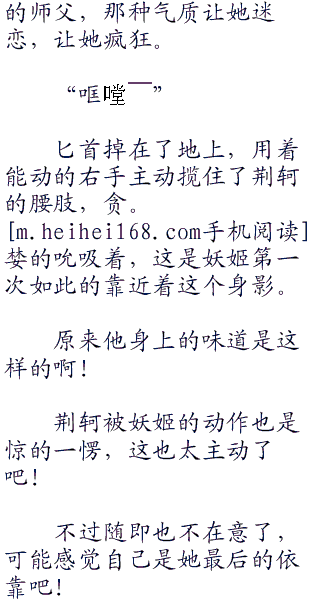 的师父，那种气质让她迷
恋，让她疯狂。
“哐嘡——”
匕首掉在了地上，用着
能动的右手主动揽住了荆轲
的腰肢，贪。
[m.heihei168.com手机阅读]
婪的吮吸着，这是妖姬第一
次如此的靠近着这个身影。
原来他身上的味道是这
样的啊！
荆轲被妖姬的动作也是
惊的一愣，这也太主动了
吧！
不过随即也不在意了，
可能感觉自己是她最后的依
靠吧！